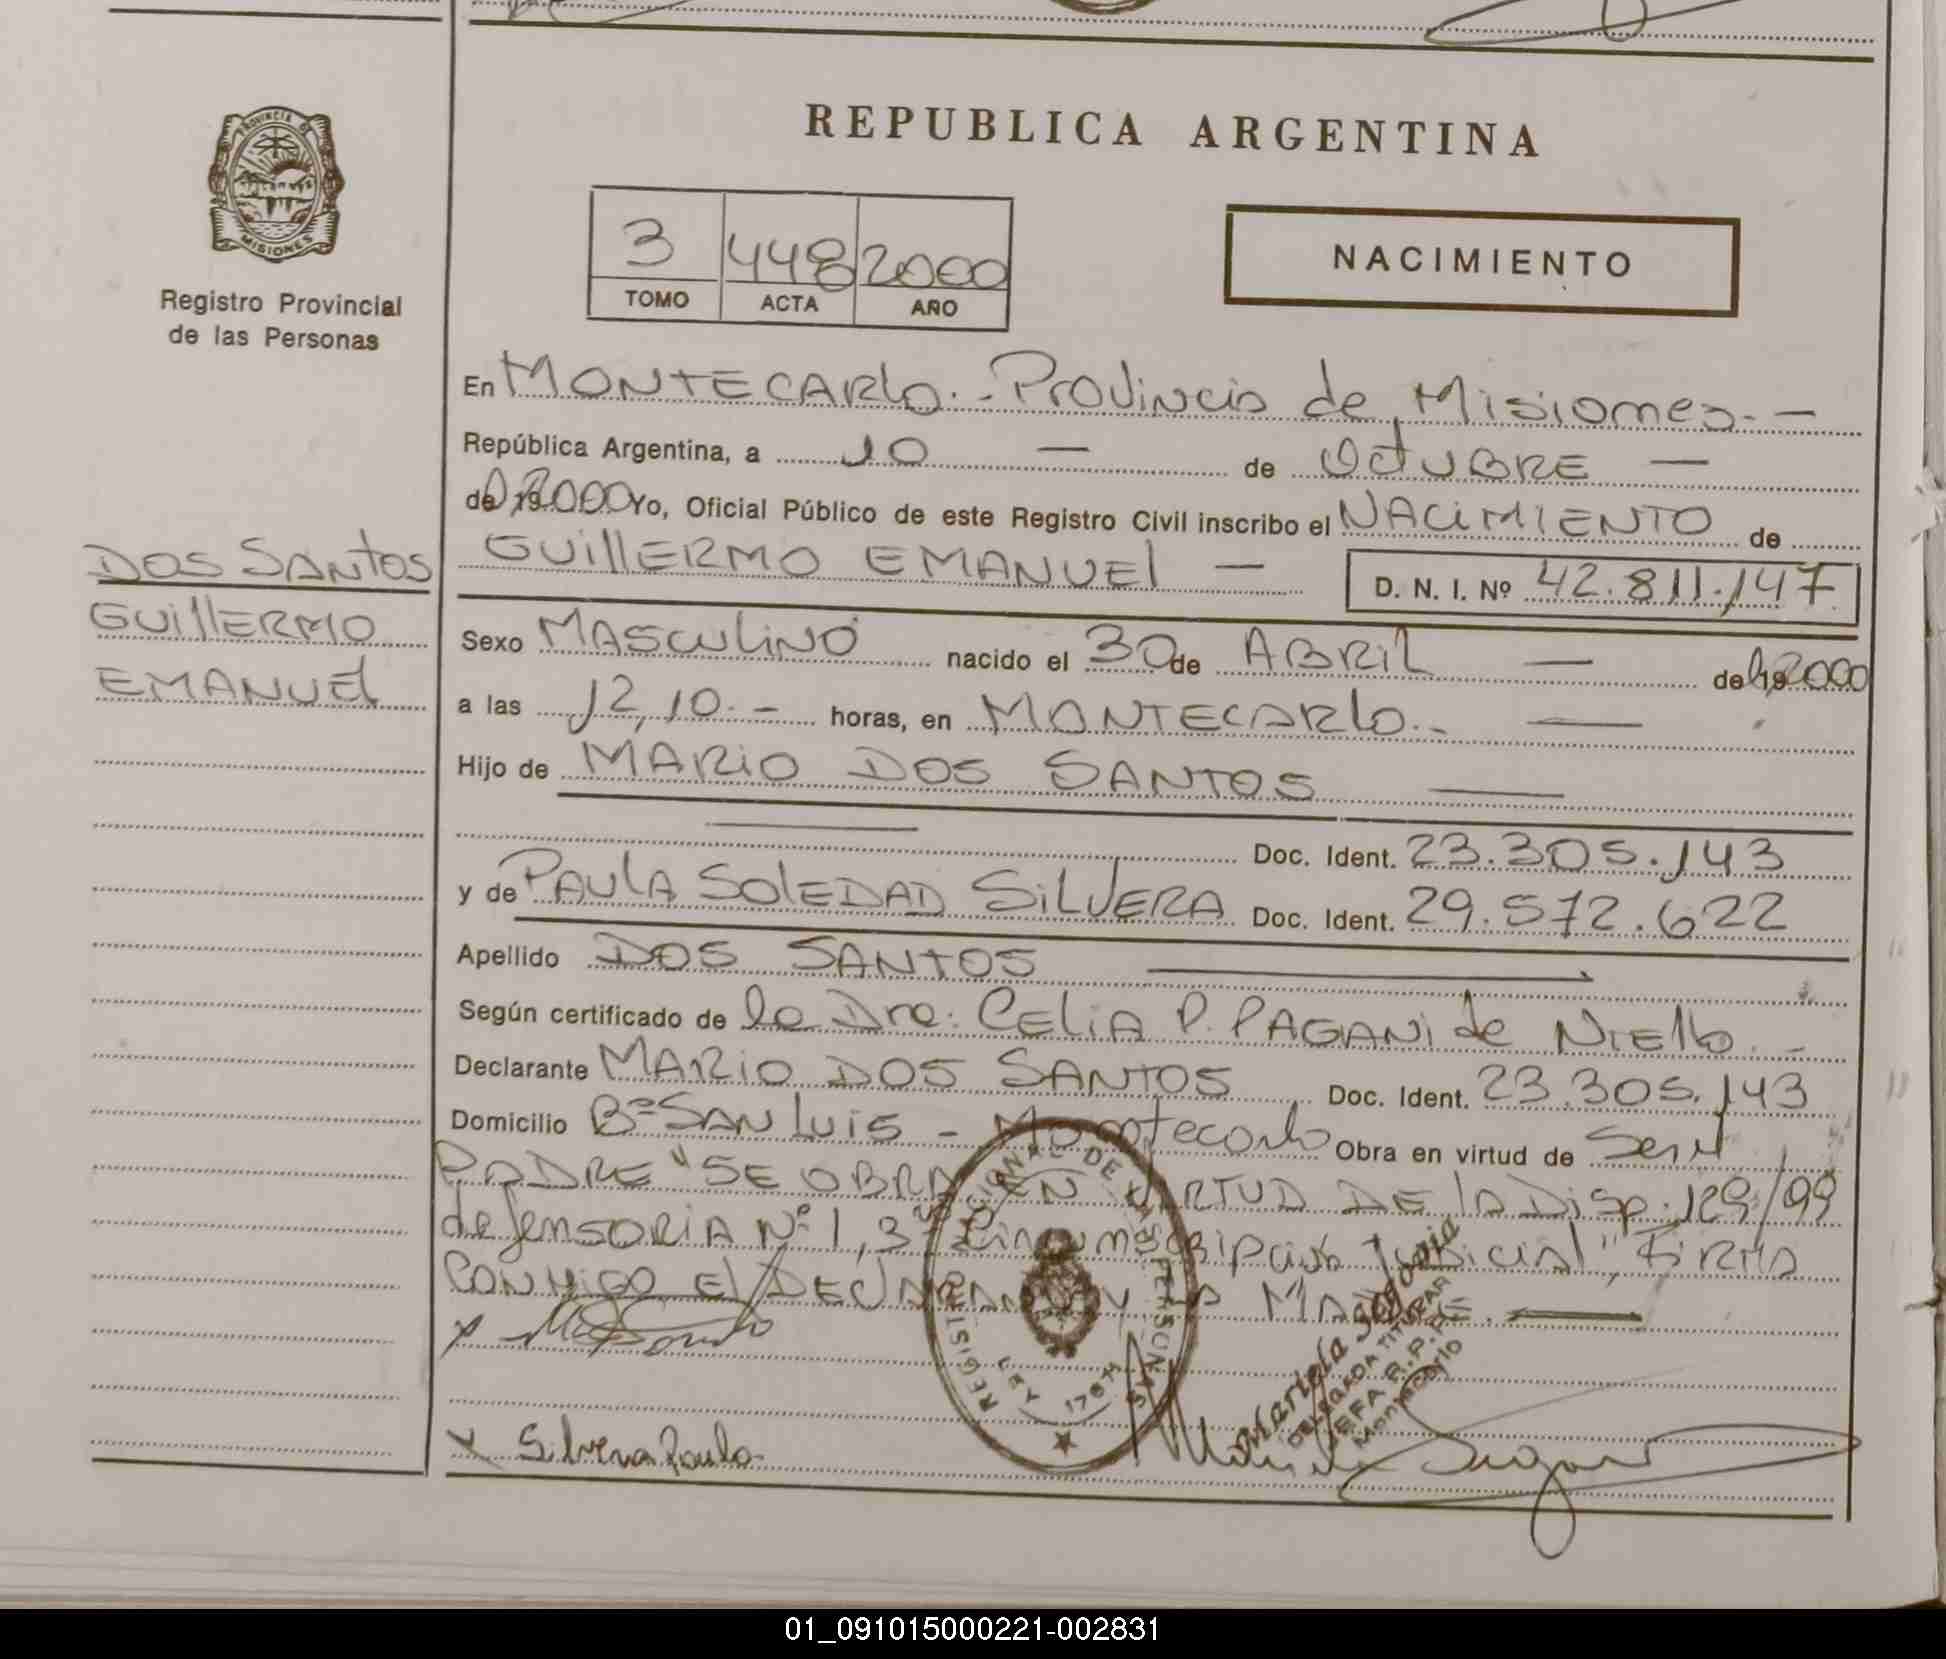 PROVINCIA DE
MISIONES
Registro Provincial
de las Personas
DOS SANTOS
GUILLERMO
EMANUEL
REPUBLICA ARGENTINA
3 448 2000
TOMO ACTA AÑO
NACIMIENTO
En MONTECARLO.- Provincia de Misiones.-
República Argentina, a 10 — de OCTUBRE —
de 19 2000 Yo, Oficial Público de este Registro Civil inscribo el NACIMIENTO de
GUILLERMO EMANUEL — D. N. I. Nº 42.811.147
Sexo MASCULINO nacido el 30 de ABRIL — de 19 2000
a las 12,10.- horas, en MONTECARLO.- —
Hijo de MARIO DOS SANTOS —
— Doc. Ident. 23.305.143
y de PAULA SOLEDAD SILVERA Doc. Ident. 29.572.622
Apellido DOS SANTOS —
Según certificado de la Dra. CELIA P. PAGANI de NIELLO.-
Declarante MARIO DOS SANTOS Doc. Ident. 23.305.143
Domicilio Bº SAN LUIS - Montecarlo Obra en virtud de Ser el
PADRE "SE OBRA EN VIRTUD DE LA Disp. 129/99
defensoria Nº 1, 3ª Circunscripción Judicial", FIRMA
CONMIGO El DECLARANTE Y LA MADRE. —
REGISTRO NACIONAL DE LAS PERSONAS
LEY 17671
Mariela Segovia
DELEGADA TITULAR
JEFA R.P.P.
Montecarlo
x
x Silvera Paula
01_091015000221-002831